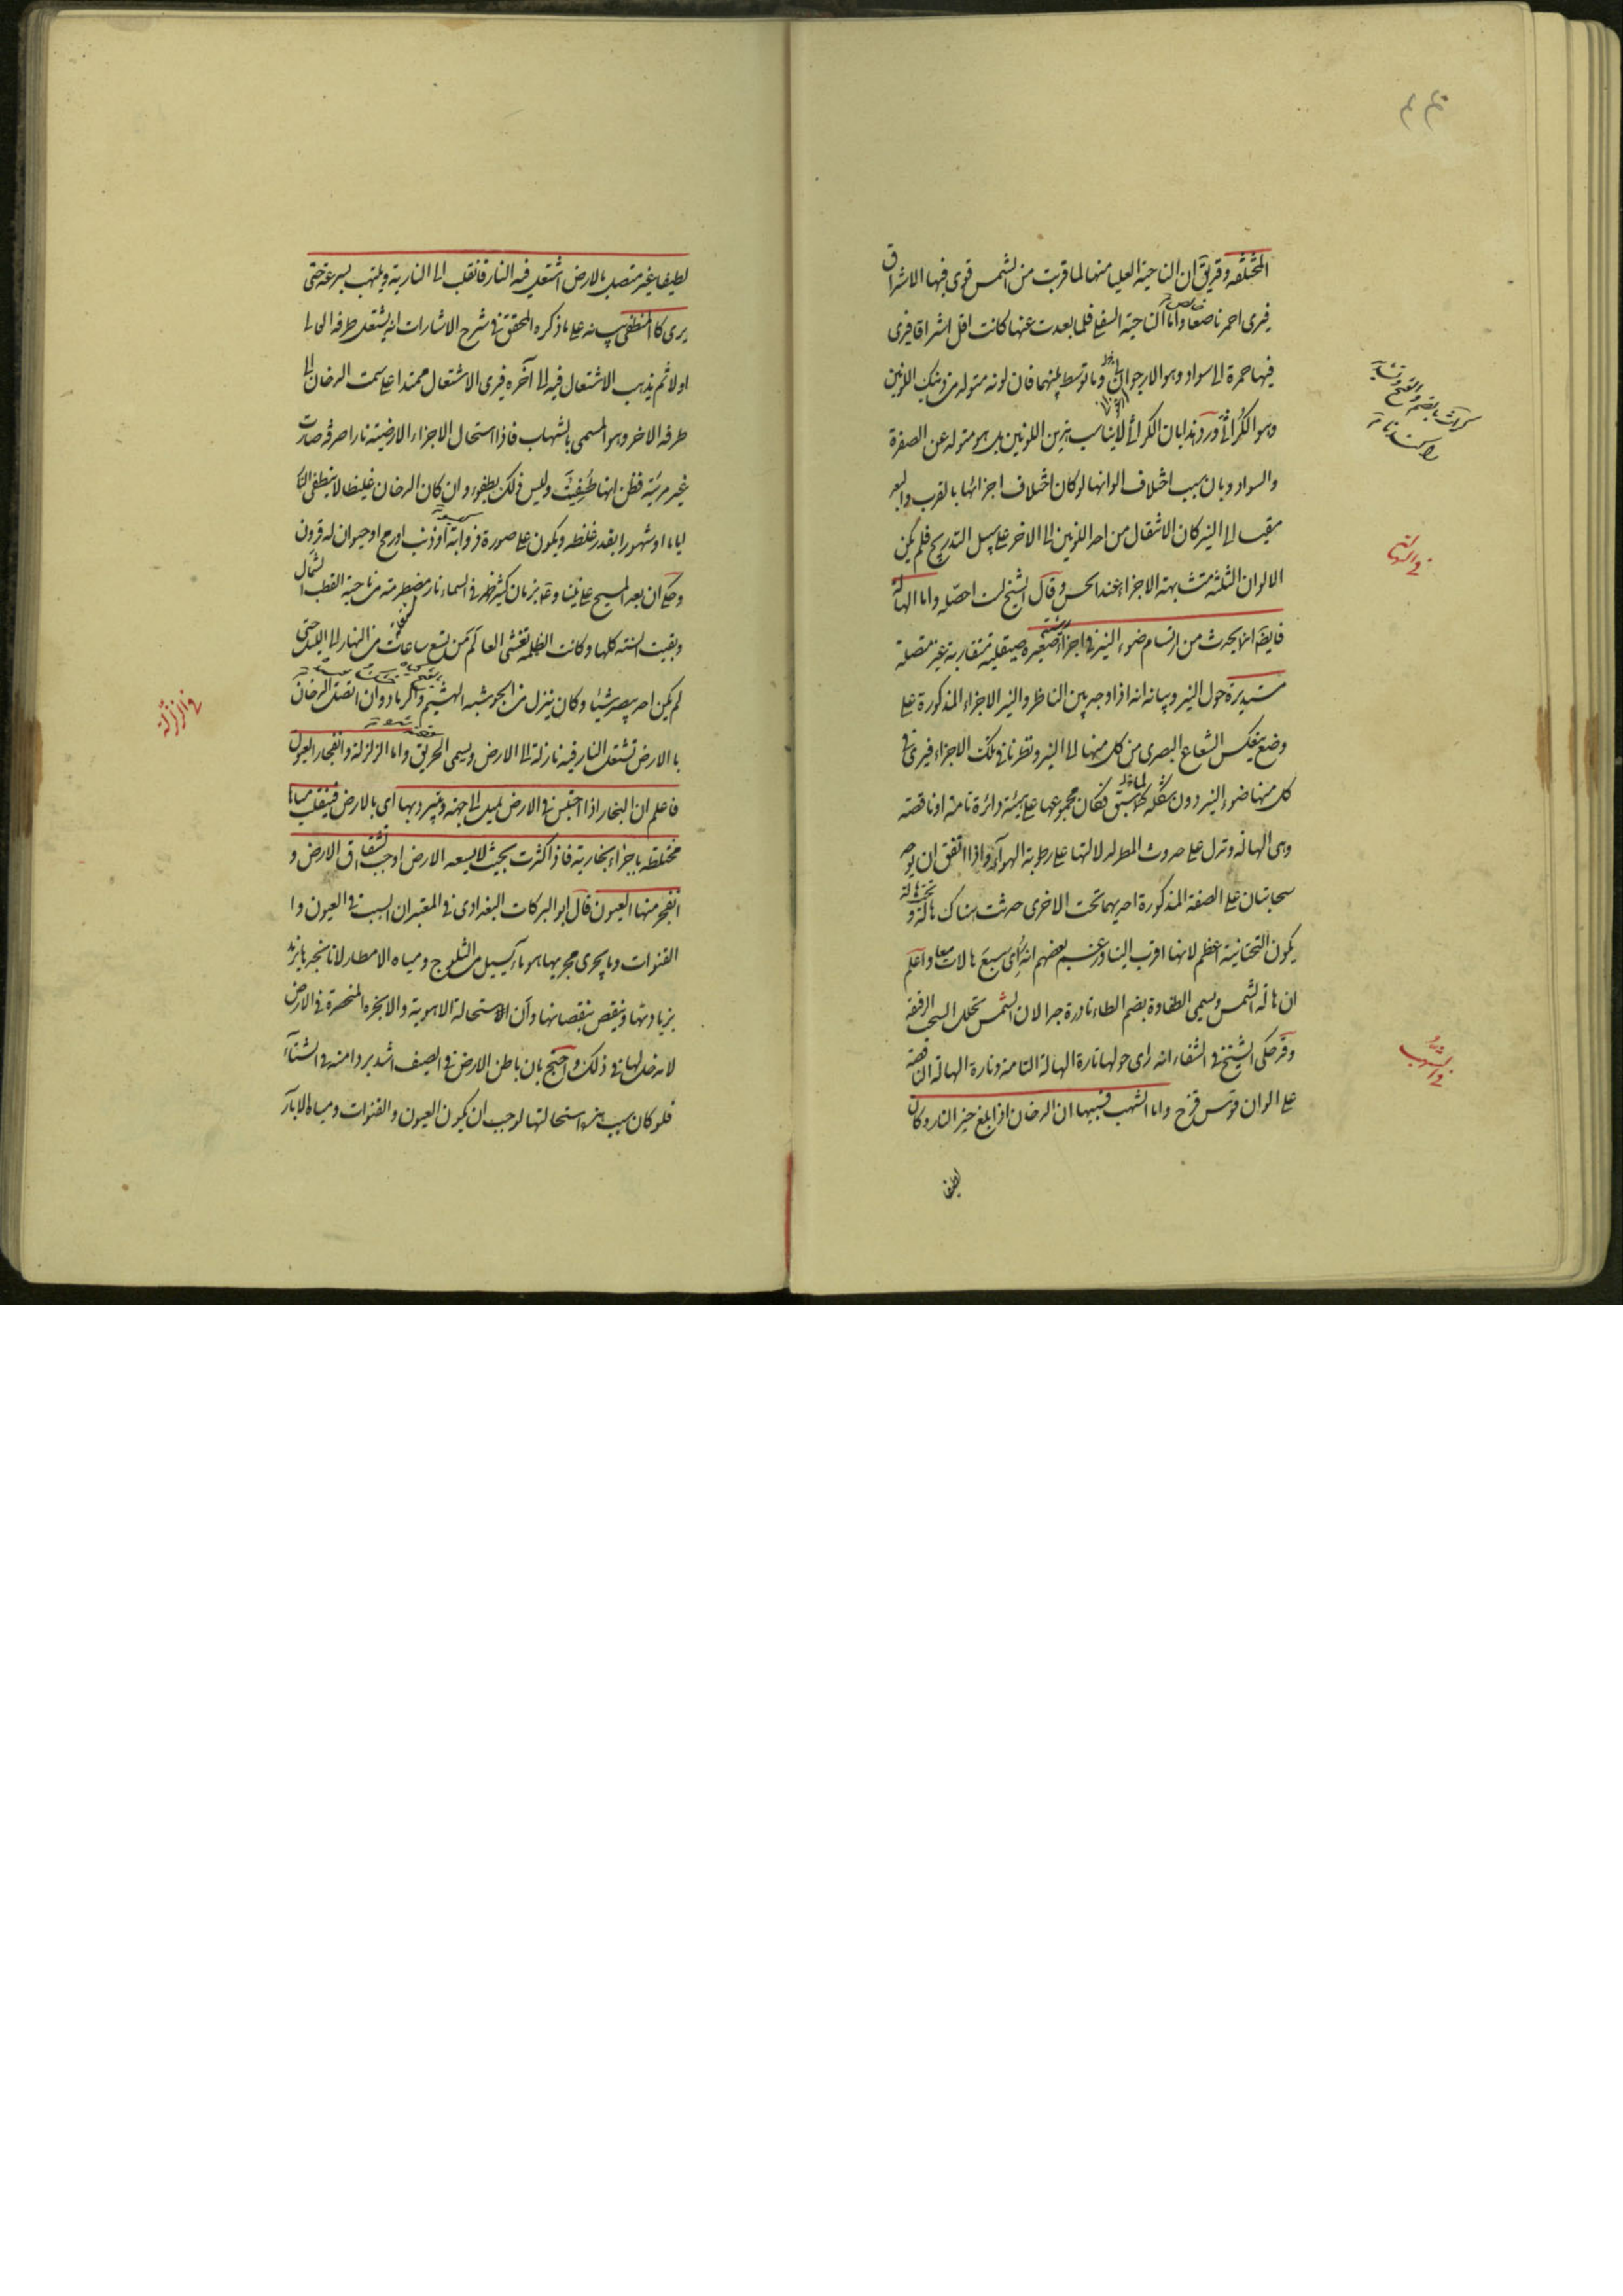 المختلفة وقد يق ان الناحية العليا منها لما قربت من الشمس قوى فيها الاشراق
فيرى احمر ناصعا واما الناحية السفلى فلما بعدت عنها كانت اقل اشراقا فيرى
فيها حمرة الى سواد وهو الارجوانى وما توسط بينهما فان لونه متولد من ذينك اللونين
وهو الكراثى ورد هذا بان الكراثى لا يناسب هذين اللونين بل هو متولد عن الصفرة
والسواد وبان سبب اختلاف الوانها لو كان اختلاف اجزائها بالقرب والبعد
بالقياس الى النير كان الانتقال من احد اللونين الى الاخر على سبيل التدريج فلم يكن
الالوان الثلثة متشابهة الاجزاء عند الحس وقال الشيخ لست احصله واما الهالة
فايضا انما يحدث من ارتسام ضوء النير فى اجزاء رشية صغيرة صيقلية متقاربة غير متصلة
مستديرة حول النير وبيانه انه اذا وجد بين الناظر والنير الاجزاء المذكورة على
وضع ينعكس الشعاع البصرى من كل منها الى النير ونظرنا فى تلك الاجزاء فيرى فى
كل منها ضوء النير دون شكله لما سبق فكان مجموعها على هيئة دائرة تامة او ناقصة
وهى الهالة وتدل على حدوث المطر لدلالتها على رطوبة الهواء واذا اتفق ان يوجد
سحابتان على الصفة المذكورة احديهما تحت الاخرى حدثت هناك هالة تحت هالة و
يكون التحتانية اعظم لانها اقرب الينا وزعم بعضهم انه رأى سبع هالات معا واعلم
ان هالة الشمس ويسمى الطفاوة بضم الطاء نادرة جدا لان الشمس تحلل السحب الرقيقة
وقد حكى الشيخ فى الشفاء انه راى حولها تارة الهالة التامة وتارة الهالة الناقصة
على الوان قوس قزح واما الشهب فسببها ان الدخان اذا بلغ حيز النار وكان
لطيفا
فى الهالة
فى الشهب
لطيفا غير متصل بالارض اشتعل فيه النار فانقلب الى النارية ويلتهب بسرعة حتى
يرى كالمنطفى بيانه على ما ذكره المحقق فى شرح الاشارات انه يشتعل طرفه العالى
اولا ثم يذهب الاشتعال فيه الى آخره فيرى الاشتعال ممتدا على سمت الدخان الى
طرفه الاخر وهو المسمى بالشهاب فاذا استحال الاجزاء الارضية نارا صرفة صارت
غير مرئية فظن انها طفيت وليس ذلك بطفوء وان كان الدخان غليظا لا ينطفى النار
اياما او شهورا بقدر غلظه ويكون على صورة ذوابة او ذنب او رمح او حيوان له قرون
وحكى ان بعد المسيح على نبينا وعليه بزمان كثير ظهر فى السماء نار مضطرمة من ناحية القطب الشمالى
وبقيت السنة كلها وكانت الظلمة تغشى العالم من تسع ساعات من النهار الى الليل حتى
لم يكن احد يبصر شيئا وكان ينزل من الجو شبه الهشيم والرماد وان اتصل الدخان
بالارض تشتعل النار فيه نازلة الى الارض ويسمى الحريق واما الزلزلة وانفجار العيون
فاعلم ان البخار اذا احتبس فى الارض يميل الى جهة ويتبرد بها اى بالارض فينقلب مياها
مختلطة باجزاء بخارية فاذا كثرت بحيث لا يسعه الارض اوجب انشقاق الارض و
انفجر منها العيون قال ابو البركات البغدادى فى المعتبر ان السبب فى العيون وا
القنوات وما يجرى مجريها هو ما يسيل من الثلوج ومياه الامطار لانا نجدها تزيد
بزيادتها وتنقص بنقصانها وان الاستحالة الاهوية والابخرة المنحصرة فى الارض
لا مدخل لها فى ذلك واحتج بان باطن الارض فى الصيف اشد بردا منه فى الشتاء
فلو كان سبب هذه استحالتها لوجب ان يكون العيون والقنوات ومياه الابار
فى الزلزلة